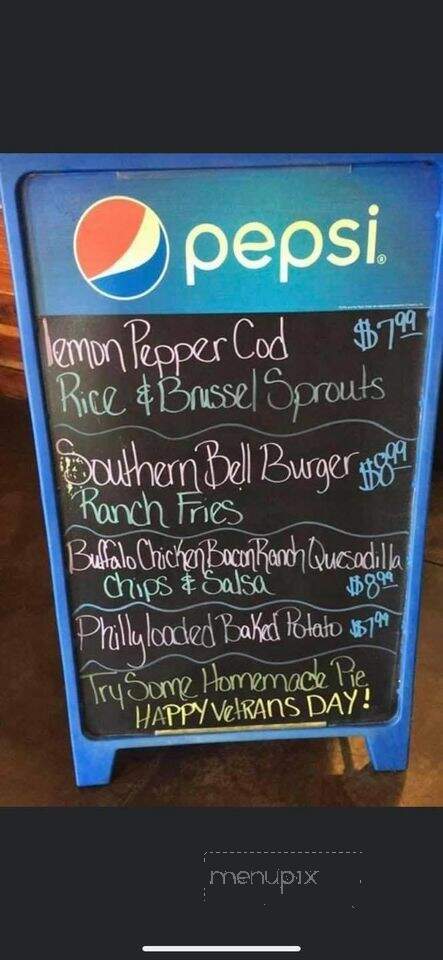 pepsi
lemon Pepper Cod $7.99
Rice & Brussel Sprouts
Southern Bell Burger $8.99
Ranch Fries
Buffalo Chicken Bacon Ranch Quesadilla
chips & Salsa $8.99
Philly loaded Baked Potato $7.99
Try Some Homemade Pie
HAPPY VetRANS DAY!
menupix